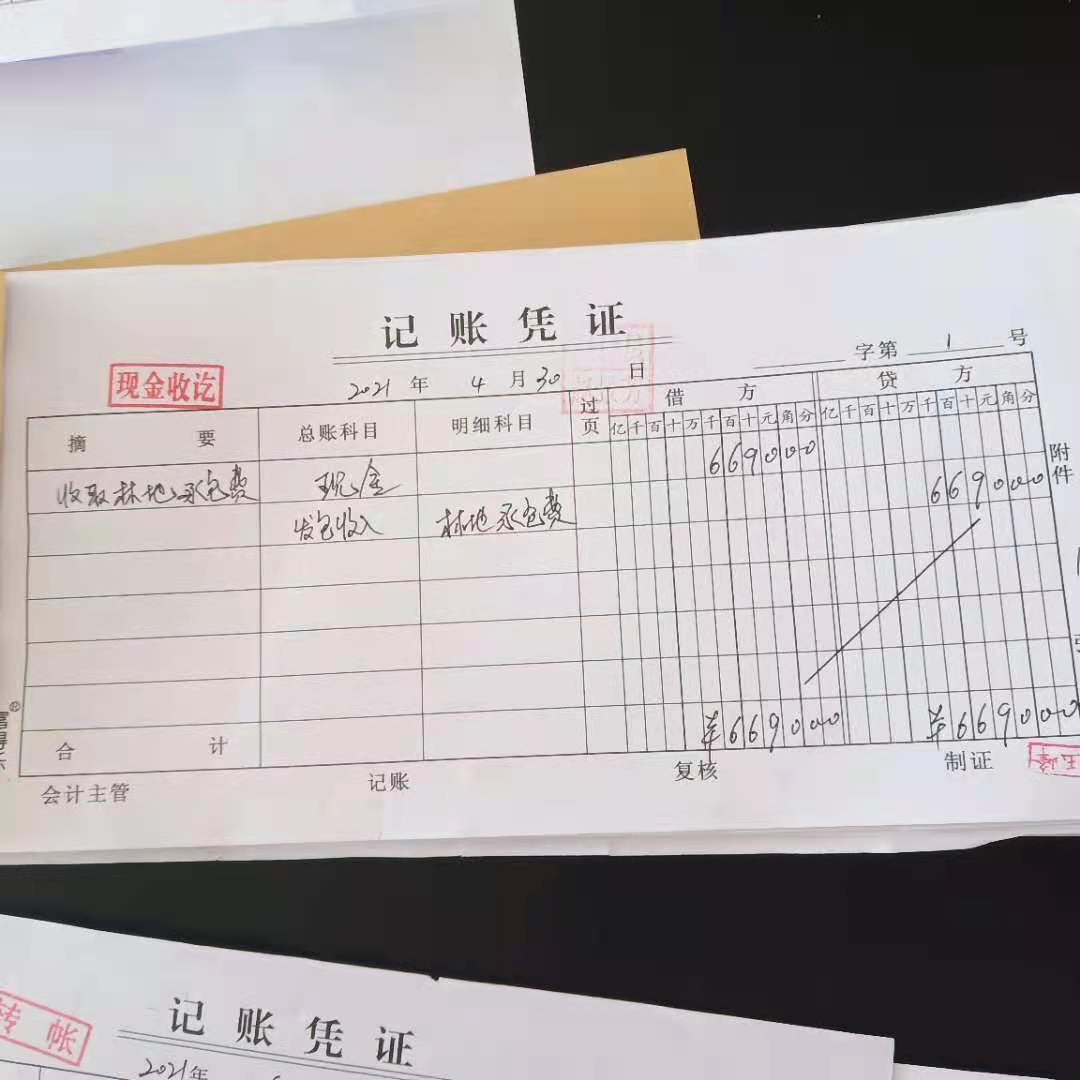 记账凭证
现金收讫
2021年4月30日
字第1号
摘要 总账科目 明细科目 过页 借方 贷方
亿千百十万千百十元角分 亿千百十万千百十元角分
收取林地承包费 现金 669000
发包收入 林地承包费 669000
合计 ¥669000 ¥669000
附件
会计主管 记账 复核 制证
转帐
记账凭证
2021年